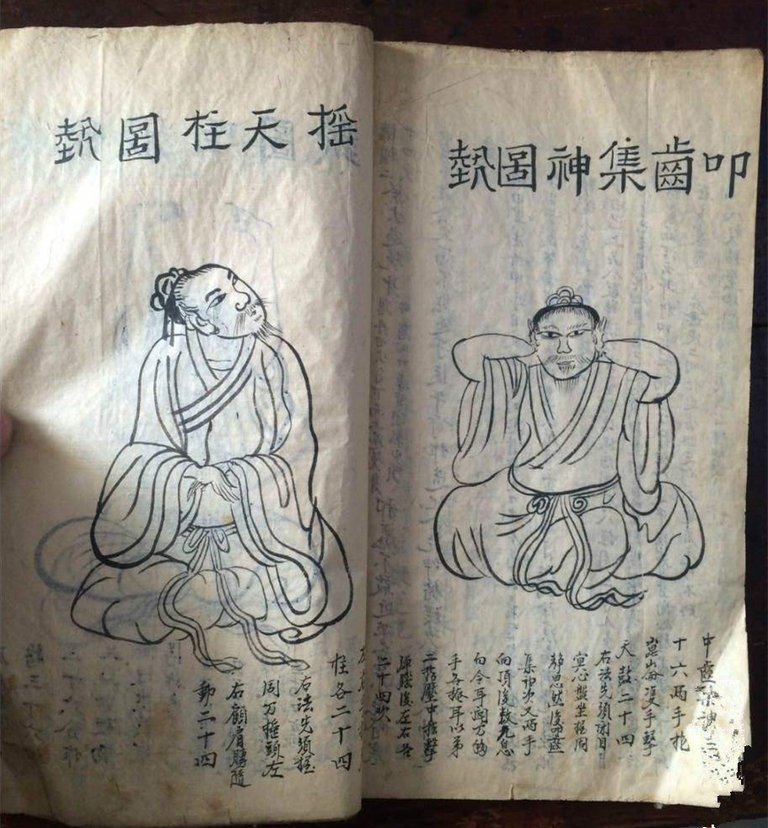 叩齒集神圖埶
叩齒集神三
十六兩手抱
崑崙雙手擊
天鼓二十四
右法先須閉目
冥心盤坐握固
靜思然後叩齒
集神次叉兩手
向項後數九息
勿令耳聞乃移
手各掩耳以第
二指壓中指擊
彈腦後左右各
二十四次
搖天柱圖埶
柱各二十四
右法先須握
固乃搖頭左
右顧肩膊隨
動二十四